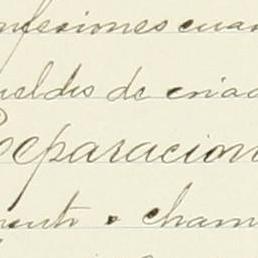 nfesiones cuan
ueldos de criad
Reparacion
mento o cham